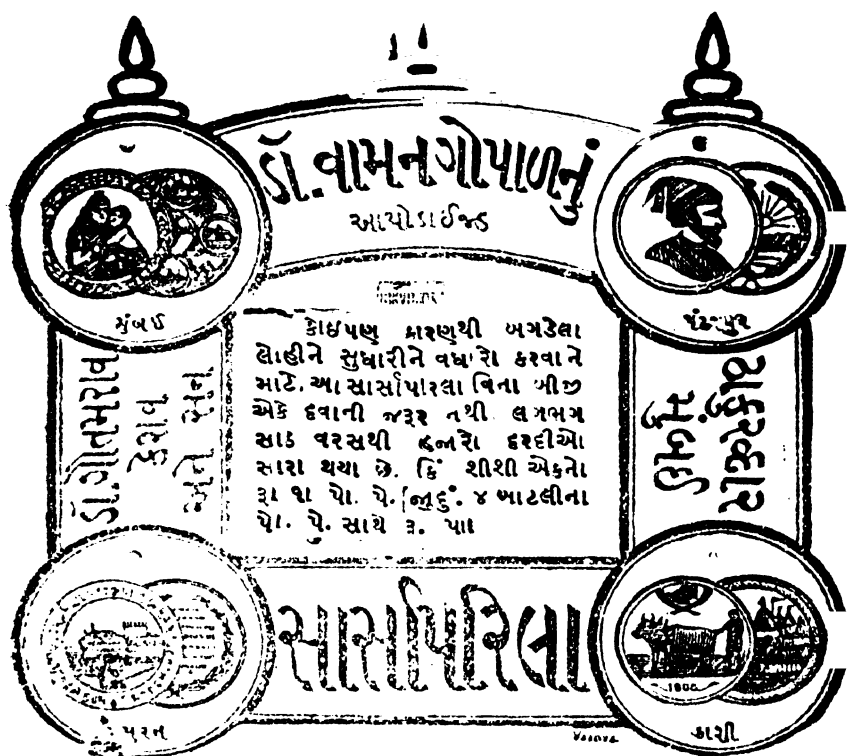 ડૉ. વામનગોપાળનું
આયોડાઈજ્ડ
મુંબઈ
કોઈપણ કારણથી બગડેલા
લોહીને સુધારીને વધારો કરવાને
માટે. આ સાર્સાપારલા વિના બીજી
એકે દવાની જરૂર નથી લગભગ
સાઠ વરસથી હજારો દરદીઓ
સારા થયા છે. કિં શીશી એકનો
રૂા ૧ા પો. પે. જુદું. ૪ બાટલીના
પો. પે. સાથે રૂ. પાા
ડૉ. ગૌતમરાવ
કેશવ
અને સન
ઠાકુરદ્વાર
મુંબઈ
સાર્સાપરિલા
1906
કાશી